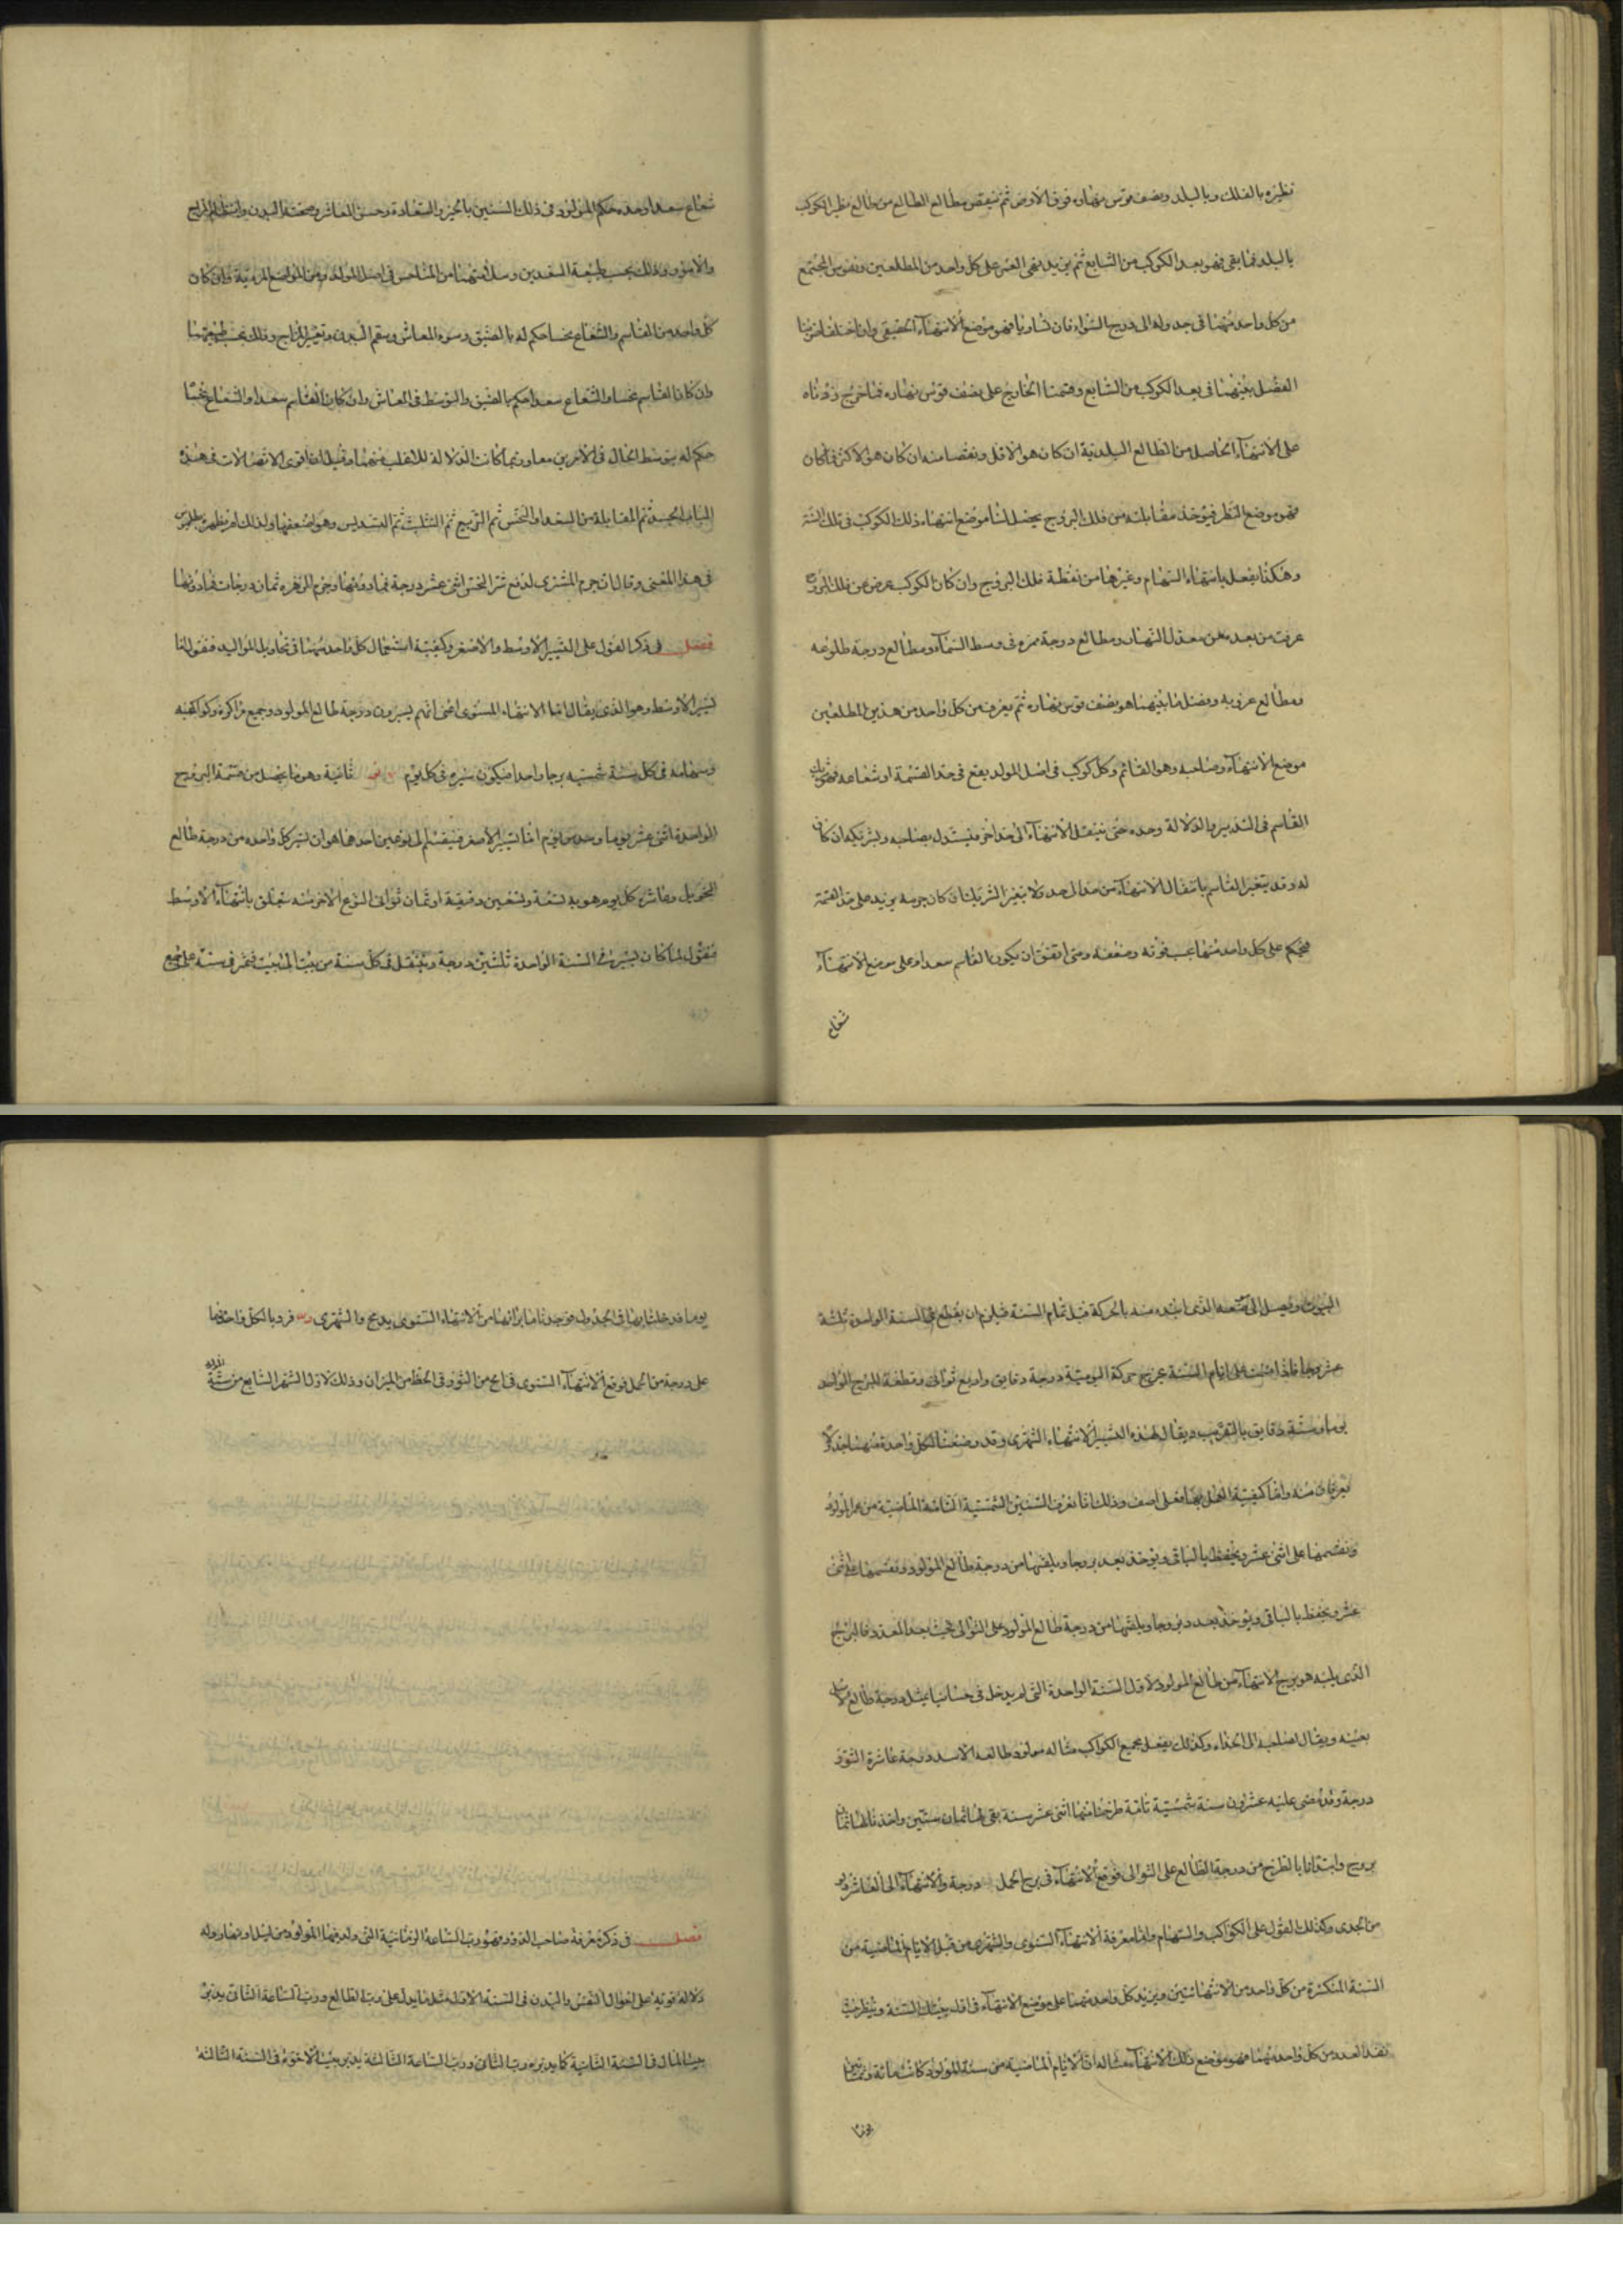 نظيره بالفلك وبالبلد ونصف قوس نهاره فوق الارض ثم ننقص مطالع الطالع من مطالع نظير الكوكب
بالبلد فما بقى فهو بعد الكوكب من السابع ثم نزيد نفى العشر على كل واحد من المطلعين ونقوس المجتمع
من كل واحد منهما فى جدوله الى درج السواء فان تساويا فهو موضع الانتهاء الحقيقى وان اختلفا ضربنا
الفضل بينهما فى بعد الكوكب من السابع وقسمنا الخارج على نصف قوس نهاره فما خرج زدناه
على الانتهاء الحاصل من المطالع البلدية ان كان هو الاقل ونقصنا منه ان كان هو الاكثر فما كان
فهو موضع النظر فيؤخذ مقابلته من فلك البروج يحصل لنا موضع انتهاء ذلك الكوكب فى تلك السنة
وهكذا يفعل بانتهاء السهام وغيرها من نقطة فلك البروج وان كان للكوكب عرض عن فلك البروج
عرفت من بعده عن معدل النهار ومطالع درجة ممره فى وسط السماء ومطالع درجة طلوعه
ومطالع غروبه وفضل ما بينهما هو نصف قوس نهاره ثم يعرف من كل واحد من هذين المطلعين
موضع الانتهاء وصاحبه وهو القاسم وكل كوكب فى اصل المولد يقع فى حد القسمة او شعاعه فهو شريك
القاسم فى التدبير والدلالة وحده حتى ينتقل الانتهاء الى حد اخر فيستدل بصاحبه وبشريكه ان كان
له وقد يتغير القاسم بانتقال الانتهاء من حد الى حد ولا يتغير الشريك ان كان جرمه يزيد على حد القسمة
فيحكم على كل واحد منهما بحسب قوته وضعفه ومتى اتفق ان يكون القاسم سعدا وعلى موضع الانتهاء
شعاع
شعاع سعد او حده حكم للمولود فى ذلك السنين بالخير والسعادة وحسن المعاش وصحة البدن وانتظام المزاج
والامور وذلك بحسب طبيعة السعدين وسلامتهما من المناحس فى اصل المولد ومن المواضع الردية وان كان
كل واحد من القاسم والشعاع نحسا حكم له بالضيق وسوء المعاش وسقم البدن وتغير المزاج وذلك بحسب طبيعتهما
وان كان القاسم نحسا والشعاع سعدا حكم بالضيق والتوسط فى المعاش وان كان القاسم سعدا والشعاع نحسا
حكم له بتوسط الحال فى الامرين معا وربما كانت الدلالة للاغلب منهما وقيل ان اقوى الاتصالات فى هذا
الباب الجسد ثم المقابلة من السعد او النحس ثم التربيع ثم التثليث ثم التسديس وهو اضعفها ولذلك لم يظهر بطلميوس
فى هذا المعنى وقال ان جرم المشترى لدفع شر النحس اثنى عشر درجة فما دونها وجرم الزهره ثمان درجات فما دونها
فصل فى ذكر القول على التسيير الاوسط والاصغر وكيفية استعمال كل واحد منهما فى تحاويل المواليد فنقول اما
تسيير الاوسط وهو الذى يقال لها الانتهاء المستوى اعنى انهم يسيرون درجة طالع المولود وجميع مراكزه وكواكبه
وسهامه فى كل سنة شمسيه برجا واحدا فيكون سيره فى كل يوم ثانية وهو ما يحصل من قسمة البرج
الواحدة اثنى عشر يوما وخمس يوم اما تسيير الاصغر فينقسم الى نوعين احدهما هو ان تسير كل واحده من درجة طالع
التحويل وعاشره كل يوم هو به تسعة وتسعين دقيقة او ثمان ثوانى النوع الاخر منه يتعلق بانتهاء الاوسط
فنقول لما كان يسير فى السنة الواحدة ثلثين درجة وينتقل فى كل سنة من بيت الى بيت فمر فى سنة على جميع
البيوت ويصل الى موضعه الذى ابتدء منه بالحركة قبل تمام السنة فيلزم ان يقطع فى السنة الواحدة ثلثة
عشر برجا فاذا قسمت على ايام السنة يخرج حركة اليومية درجة دقايق واربع ثوانى وقطعه للبرج الواحد
يوما وستة دقايق بالتقريب ويقال لهذه التسيير الانتهاء الشهرى وقد وضعنا لكل واحدة منهما جدولا
تعرفان منه واما كيفية العمل بهما فعلى ما اصف وذلك انا نعرف السنين الشمسية التامة الماضية من عمر المولود
ونقسمها على اثنى عشر ويحفظ بالباقى ويؤخذ بعد بروجا ويلقيها من درجة طالع المولود ونقسمها على اثنى
عشر ويحفظ بالباقى ويؤخذ بعدد بروجا ويلقيها من درجة طالع المولود على التوالى فحيث نفد العدد فالبرج
الذى يليه هو برج الانتهاء من طالع المولود لاول السنة الواحدة التى لم يدخل فى حسابنا بمثل درجة طالع الاصل
بعينه ويقال لصاحبه الى الحذاء وكذلك يفعل بجميع الكواكب مثاله مولود طالعه الاسد درجة عاشرة الثور
درجة وقد مضى عليه عشرون سنة شمسية تامة طرحنا منها اثنى عشر سنة بقى لها ثمان سنين واخذنا لها ثمان
بروج وابتدانا بالطرح من درجة الطالع على التوالى فوقع الانتهاء فى برج الحمل درجة والانتهاء الى العاشر
من الجدى وكذلك القول على الكواكب والسهام واما معرفة الانتهاء السنوى والشهرى من قبل الايام الماضية من
السنة المنكسرة من كل واحد من الانتهائين ونزيد كل واحد منهما على موضع الانتهاء فى اول تلك السنة وينظر حيث
نفد العدد من كل واحد منهما فهو موضع ذلك الانتهاء مثاله ان الايام الماضية من سنة المولود كانت مائة وثمانين
يوما
يوما فدخلنا بها فى الجدول فوجدنا ما بازائها من الانتهاء السنوى يدمج والشهرى فزدنا لكل واحد منهما
على درجة من الحمل فوقع الانتهاء السنوى فى من الثور فى الحظ من الميزان وذلك لاول الشهر السابع من سنة
فصل فى ذكر معرفة صاحب الدور وهو رب الساعة الزمانية التى ولد فيها المولود من ليل او نهار وله
دلالة قوية على احوال النفس والبدن فى السنة الاولة مثل ما يدل على رب الطالع ورب الساعة الثانى يدبر
بيت المال فى السنة الثانية كما يدبره رب الثانى ورب الساعة الثالثة يدبر بيت الاخوة فى السنة الثالثة